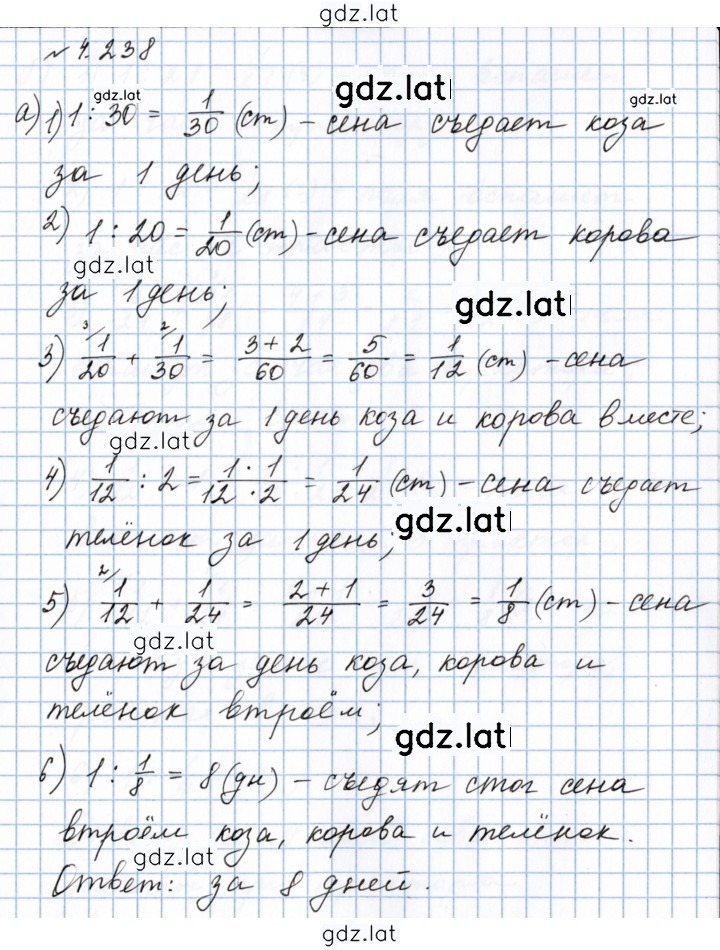 gdz.lat
№ 4.238
gdz.lat
gdz.lat
а) 1) 1 : 30 = 1/30 (ст) – сена съедает коза
за 1 день;
2) 1 : 20 = 1/20 (ст) – сена съедает корова
gdz.lat
за 1 день;
gdz.lat
3) ³⁄1/20 + ²⁄1/30 = 3+2/60 = 5/60 = 1/12 (ст) – сена
съедают за 1 день коза и корова вместе;
gdz.lat
4) 1/12 : 2 = 1·1/12·2 = 1/24 (ст) – сена съедает
gdz.lat
телёнок за 1 день;
5) ²⁄1/12 + 1/24 = 2+1/24 = 3/24 = 1/8 (ст) – сена
gdz.lat
съедают за день коза, корова и
телёнок втроём;
gdz.lat
6) 1 : 1/8 = 8 (дн) – съедят стог сена
втроём коза, корова и телёнок.
gdz.lat
Ответ: за 8 дней.
gdz.lat